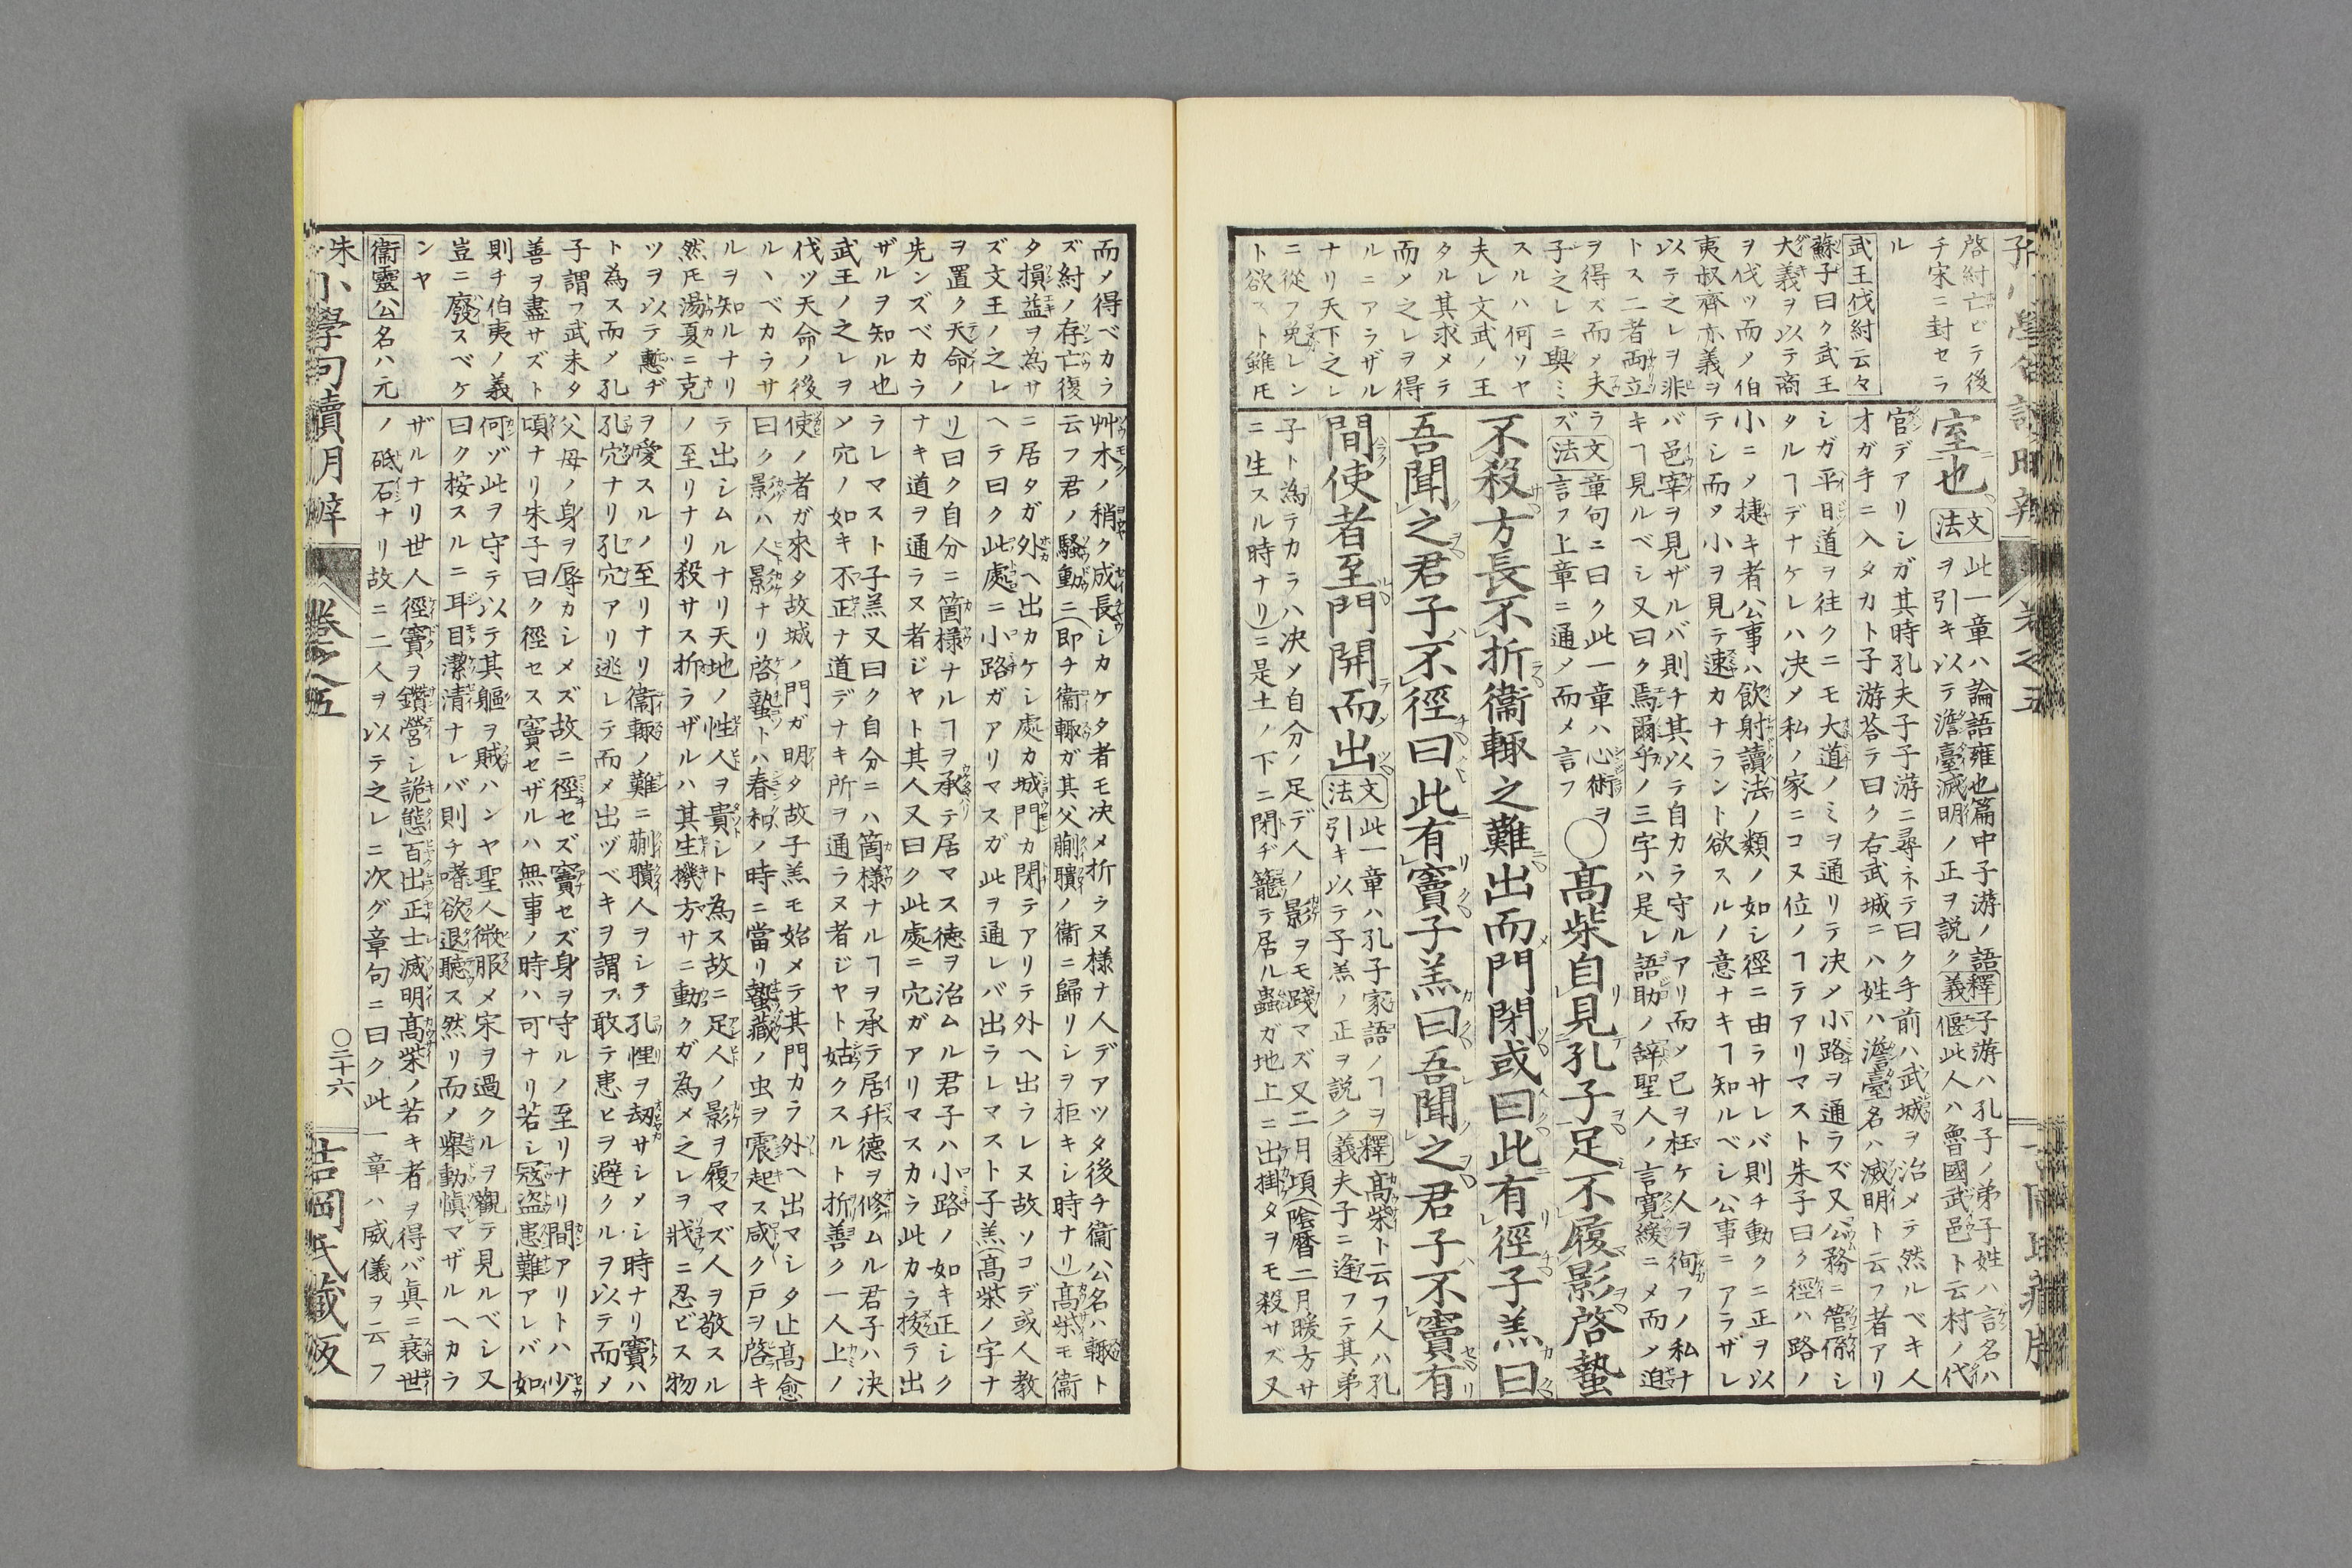 啓紂亡ビテ後
チ宋ニ封セラ
ル
武王伐紂云々
蘇子曰ク武王
大義ヲ以テ商
ヲ伐ツ而メ伯
夷叔齊亦義ヲ
以テ之レヲ非
トス二者両立
ヲ得ズ而メ夫
子之レニ與ミ
スルハ何ソヤ
夫レ文武ノ王
タル其求メテ
而メ之レヲ得
ルニアラザル
ナリ天下之レ
ニ從フ免レン
ト欲スト雖𪜈
室也文法
此一章ハ論語雍也篇中子游ノ語釋子游ハ孔子ノ弟子姓ハ言名ハ
ヲ引キ以テ澹臺滅明ノ正ヲ説ク義偃此人ハ魯國武邑ト云村ノ代
官デアリシガ其時孔夫子子游ニ尋ネテ曰ク手前ハ武城ヲ治メテ然ルベキ人
オガ手ニ入タカト子游荅テ曰ク右武城ニハ姓ハ澹臺名ハ滅明ト云フ者アリ
シガ平日道ヲ往クニモ大道ノミヲ通リテ决メ小路ヲ通ラズ又公務ニ管係シ
タルヿデナケレハ决メ私ノ家ニコヌ位ノヿテアリマスト朱子曰ク徑ハ路ノ
小ニノ捷キ者公事ハ飲射讀法ノ類ノ如シ徑ニ由ラサレバ則チ動クニ正ヲ以
テシ而メ小ヲ見テ速カナラント欲スルノ意ナキヿ知ルベシ公事ニアラザレ
バ邑宰ヲ見ザルバ則チ其以テ自カラ守ルアリ而メ已ヲ枉ケ人ヲ徇フノ私ナ
キヿ見ルベシ又曰ク焉爾乎ノ三字ハ是レ語助ノ辭聖人ノ言寛緩ニメ而メ迫
ラ文章句ニ曰ク此一章ハ心術ヲ
ズ法言フ上章ニ通メ而メ言フ
○髙柴自見孔子足不履影啓蟄
不殺方長不折衞輒之難出而門閉或曰此有徑子羔曰
吾聞之君子不徑曰此有竇子羔曰吾聞之君子不竇有
間使者至門開而出文法
此一章ハ孔子家語ノヿヲ釋髙柴ト云フ人ハ孔
引キ以テ子羔ノ正ヲ説ク義夫子ニ逢フテ其弟
子ト為テカラハ决メ自分ノ足デ人ノ影ヲモ踐マズ又二月項(陰暦二月暖方サ
ニ生スル時ナリ)ニ是土ノ下ニ閉ヂ籠テ居ル蟲ガ地上ニ出掛タヲモ殺サズ又
卷之五
而メ得ベカラ
ズ紂ノ存亡復
タ損益ヲ為サ
ズ文王ノ之レ
ヲ置ク天命ノ
先ンズベカラ
ザルヲ知ル也
武王ノ之レヲ
伐ツ天命ノ後
ル丶ベカラサ
ルヲ知ルナリ
然𪜈湯夏ニ克
ツヲ以テ慙ヂ
ト為ス而メ孔
子謂フ武未タ
善ヲ盡サズト
則チ伯夷ノ義
豈ニ廢スベケ
ンヤ
衞靈公名ハ元
艸木ノ稍ク成長シカケタ者モ决メ折ラヌ様ナ人デアツタ後チ衞公名ハ輒ト
云フ君ノ騒動ニ(即チ衞輒ガ其父蒯聵ノ衞ニ歸リシヲ拒キシ時ナリ)髙柴モ衞
ニ居タガ外ヘ出カケシ處カ城門カ閉テアリテ外ヘ出ラレヌ故ソコデ或人教
ヘテ曰ク此處ニ小路ガアリマスガ此ヲ通レバ出ラレマスト子羔(髙柴ノ字ナ
リ)曰ク自分ニ箇様ナルヿヲ承テ居マス徳ヲ治ムル君子ハ小路ノ如キ正シク
ナキ道ヲ通ラヌ者ジヤト其人又曰ク此處ニ穴ガアリマスカラ此カラ拔テ出
ラレマスト子羔又曰ク自分ニハ箇様ナルヿヲ承テ居升德ヲ修ムル君子ハ决
ソ穴ノ如キ不正ナ道デナキ所ヲ通ラヌ者ジヤト姑クスルト折善ク一人上ノ
使ノ者ガ來タ故城ノ門ガ明タ故子羔モ始メテ其門カラ外ヘ出マシタ止髙愈
曰ク景ハ人影ナリ啓蟄トハ春和ノ時ニ當リ蟄藏ノ虫ヲ震起ス咸ク戸ヲ啓キ
テ出シムルナリ天地ノ性人ヲ貴シト為ス故ニ足人ノ影ヲ履マズ人ヲ敬スル
ノ至リナリ殺サス折ラザルハ其生機方サニ動クガ為メ之レヲ戕ニ忍ビス物
ヲ愛スルノ至リナリ衞輒ノ難ニ蒯聵人ヲシテ孔悝ヲ刼サシメシ時ナリ竇ハ
孔穴ナリ孔穴アリ逃レテ而メ出ヅベキヲ謂フ敢テ患ヒヲ避クルヲ以テ而メ
父母ノ身ヲ辱カシメズ故ニ徑セズ竇セズ身ヲ守ルノ至リナリ間アリトハ少
頃ナリ朱子曰ク徑セス竇セザルハ無事ノ時ハ可ナリ若シ冦盗患難アレバ如
何ゾ此ヲ守テ以テ其軀ヲ賊ハンヤ聖人微服メ宋ヲ過クルヲ觀テ見ルベシ又
曰ク按スルニ耳目潔清ナレバ則チ嗜欲退聽ス然リ而メ舉動愼マザルヘカラ
ザルナリ世人徑竇ヲ鑽營シ詭態百出正士滅明髙柴ノ若キ者ヲ得バ眞ニ衰世
ノ砥石ナリ故ニ二人ヲ以テ之レニ次グ章句ニ曰ク此一章ハ威儀ヲ云フ
朱小學句讀明辨
卷之五
○二十六
吉岡氏藏版